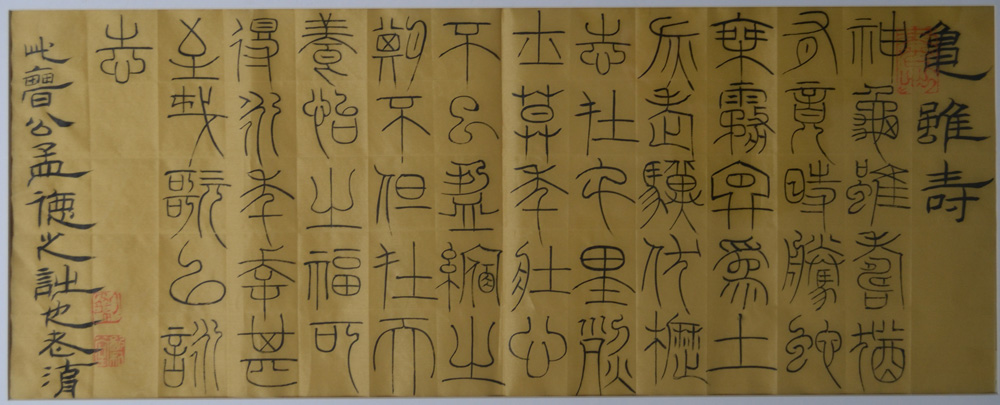 亀雖寿
神龜雖壽猶
有竟時騰蛇
乘霧終為土
灰老驥伏櫪
志在千里烈
士莫年壯心
不已盈縮之
期不但在天
養怡之福可
得永年幸甚
至哉歌以詠
志
此曹公孟德之詩也老